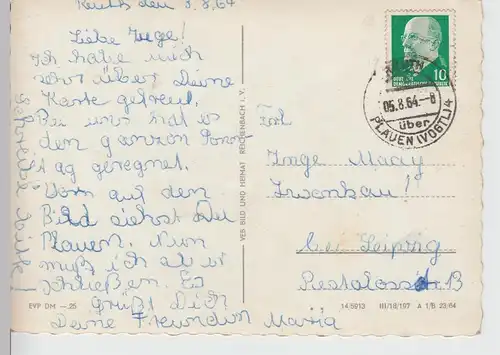 Reuth den 3.8.64
Liebe Inge!
Ich habe mich
sehr über Deine
Karte gefreut.
Bei uns hat es
den ganzen Sonnt
ag geregnet.
Vorn auf den
Bild siehst Du
Plauen. Nun
muß ich aber
schließen. Es
Grüßt Dich
Deine Freundin Maria
Schreibe
VEB BILD UND HEIMAT REICHENBACH i. V.
EVP DM –.25
10
05.8.64.–8
über
PLAUEN (VOGTL) 4
Frl
Inge Maay
Zwenkau!
bei Leipzig
14.5613 III/18/197 A 1/B 23/64